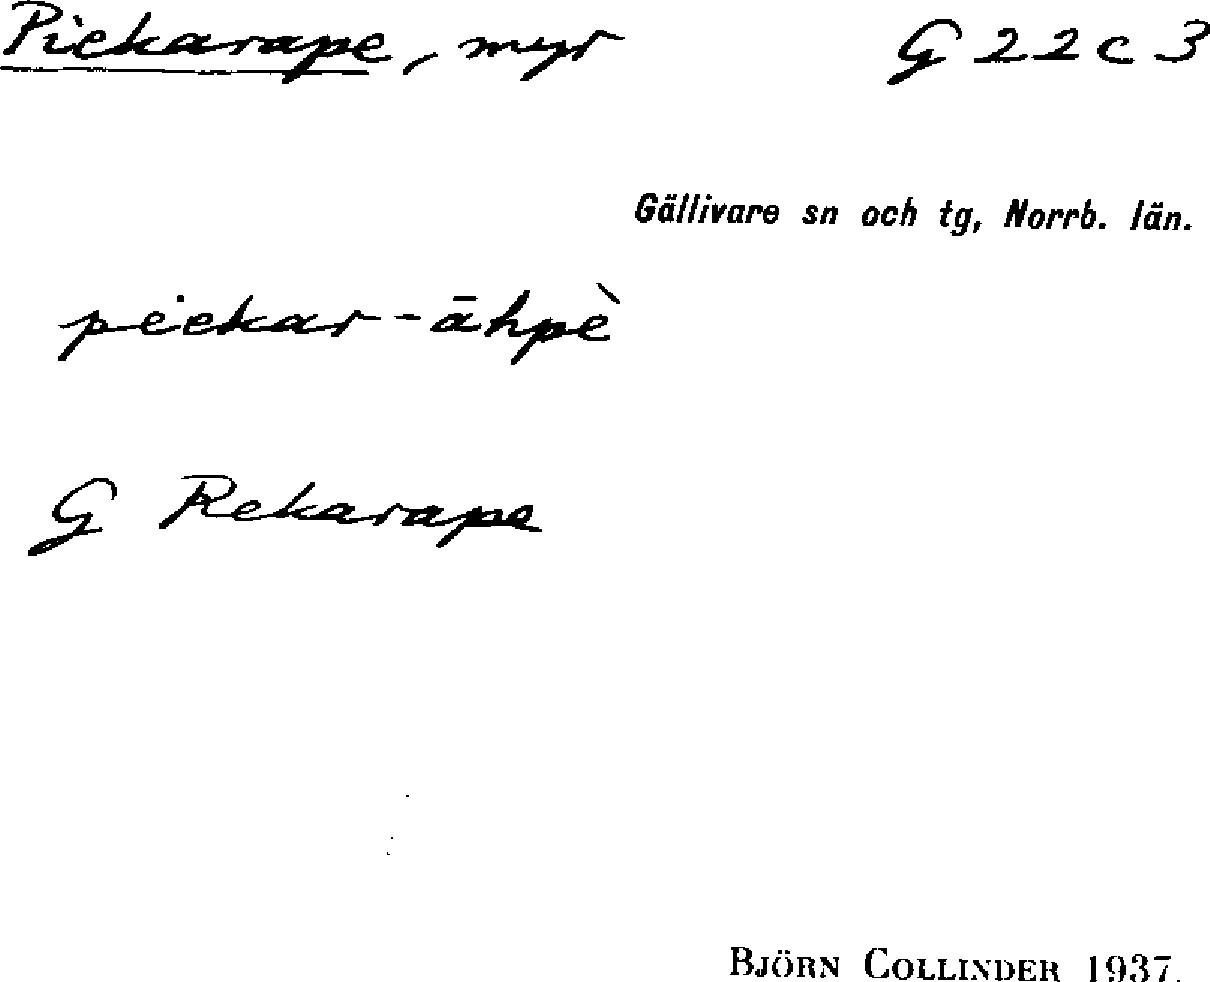 Piekarape, myr G 22 c 3
Gällivare sn och tg, Norrb. län.
pėekar-āhpè
G Rekarape
BJÖRN COLLINDER 1937.